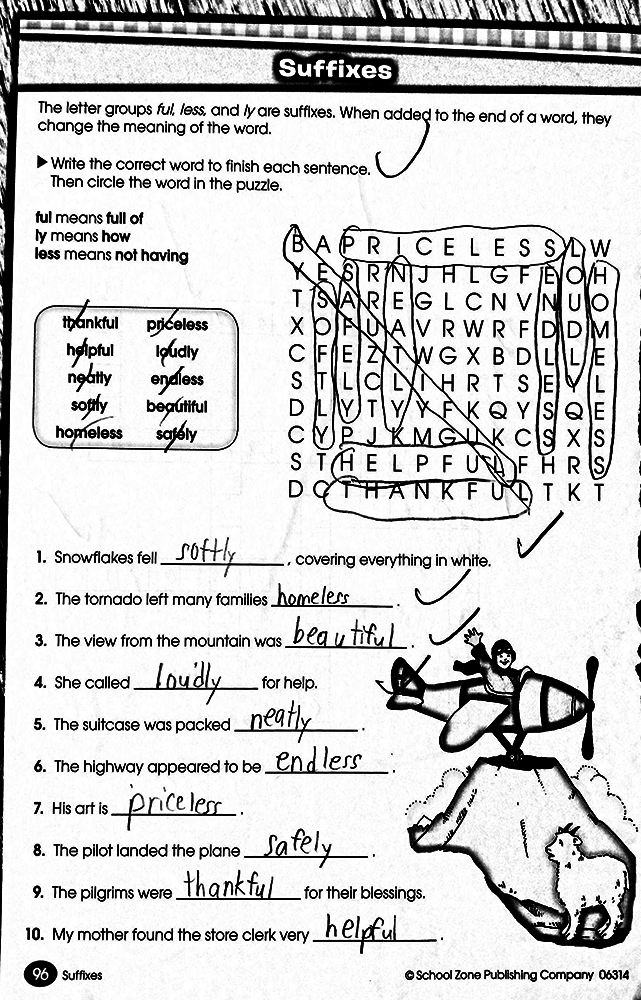 Suffixes
The letter groups ful, less, and ly are suffixes. When added to the end of a word, they
change the meaning of the word.
▶ Write the correct word to finish each sentence.
Then circle the word in the puzzle.
ful means full of
ly means how
less means not having
thankful priceless
helpful loudly
neatly endless
softly beautiful
homeless safely
B A P R I C E L E S S L W
Y E S R N J H L G F E O H
T S A R E G L C N V N U O
X O F U A V R W R F D D M
C F E Z T W G X B D L L E
S T L C L I H R T S E Y L
D L Y T Y Y F K Q Y S Q E
C Y P J K M G U K C S X S
S T H E L P F U L F H R S
D C T H A N K F U L T K T
1. Snowflakes fell softly, covering everything in white.
2. The tornado left many families homeless.
3. The view from the mountain was beautiful.
4. She called loudly for help.
5. The suitcase was packed neatly.
6. The highway appeared to be endless.
7. His art is priceless.
8. The pilot landed the plane safely.
9. The pilgrims were thankful for their blessings.
10. My mother found the store clerk very helpful.
96 Suffixes © School Zone Publishing Company 06314